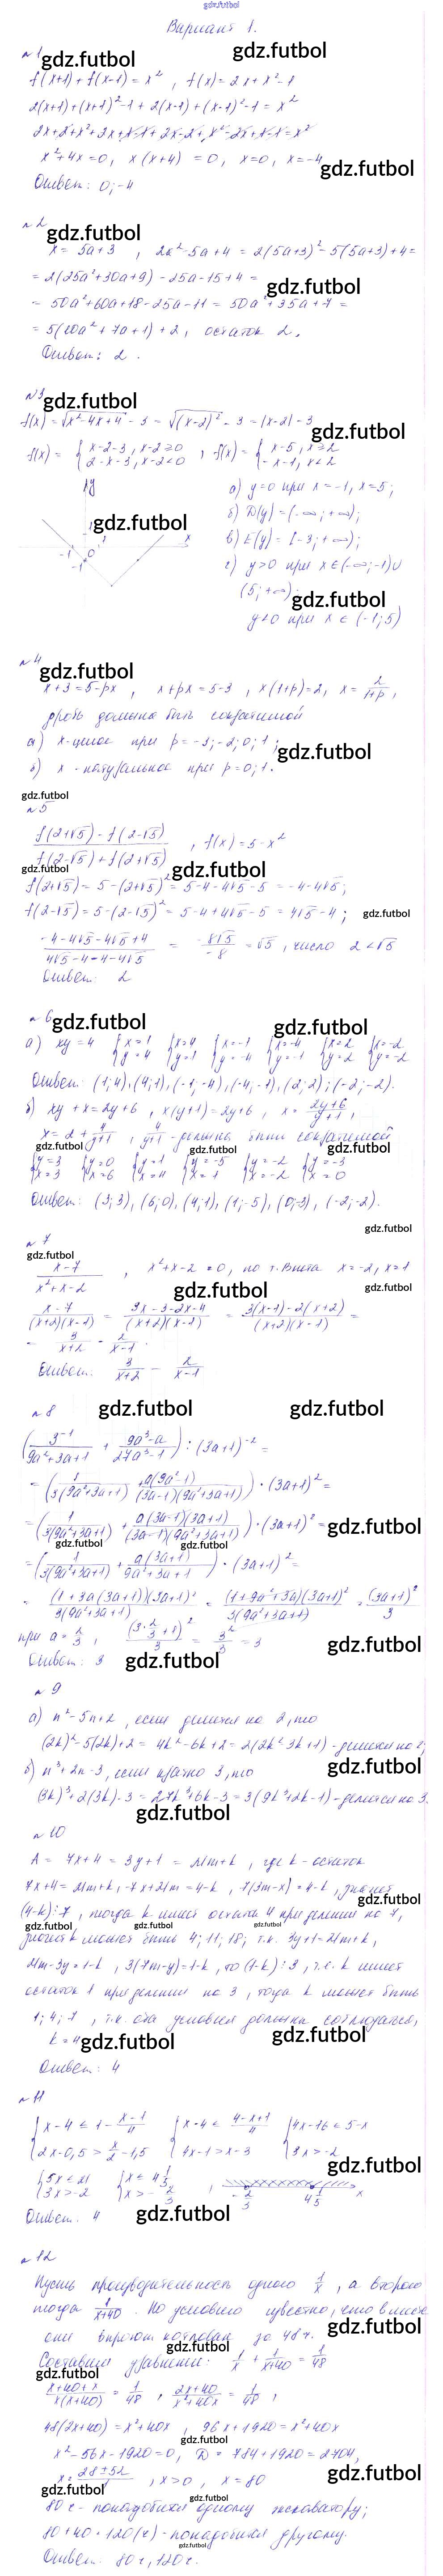 gdz.futbol
Вариант 1.
№1
gdz.futbol
gdz.futbol
f(x+1) + f(x-1) = x², f(x) = 2x + x² - 1
2(x+1) + (x+1)² - 1 + 2(x-1) + (x-1)² - 1 = x²
x² + 4x = 0, x(x+4) = 0, x=0, x=-4
gdz.futbol
Ответ: 0; -4
№2
gdz.futbol
x = 5a+3, 2x² - 5a + 4 = 2(5a+3)² - 5(5a+3) + 4 =
= 2(25a² + 30a + 9) - 25a - 15 + 4 =
gdz.futbol
= 50a² + 60a + 18 - 25a - 11 = 50a² + 35a + 7 =
= 5(10a² + 7a + 1) + 2, остаток 2.
Ответ: 2.
№3
gdz.futbol
f(x) = √x² - 4x + 4 - 3 = √(x-2)² - 3 = |x-2| - 3
gdz.futbol
f(x) = { x-2-3, x-2≥0
2-x-3, x-2<0 , f(x) = { x-5, x≥2
-x-1, x<2
y
gdz.futbol
-1 0 1 x
-1
а) y=0 при x=-1, x=5;
б) D(y) = (-∞; +∞);
в) E(y) = [-3; +∞);
г) y>0 при x∈(-∞;-1)∪
(5; +∞);
gdz.futbol
y<0 при x∈(-1; 5)
№4
gdz.futbol
x+3 = 5-px, x+px = 5-3, x(1+p)=2, x = 2/1+p,
дробь должна быть сократимой
а) x-целое при p = -3; -2; 0; 1;
gdz.futbol
б) x - натуральное при p=0; 1.
gdz.futbol
№5
f(2+√5) - f(2-√5) / f(2-√5) + f(2+√5), f(x) = 5 - x²
gdz.futbol
gdz.futbol
f(2+√5) = 5 - (2+√5)² = 5-4-4√5-5 = -4-4√5;
f(2-√5) = 5 - (2-√5)² = 5-4+4√5-5 = 4√5-4;
gdz.futbol
-4-4√5-4√5+4 / 4√5-4-4-4√5 = -8√5 / -8 = √5, число 2<√5
Ответ: 2
№6
gdz.futbol
gdz.futbol
а) xy=4 { x=1 y=4 { x=4 y=1 { x=-1 y=-4 { x=-4 y=-1 { x=2 y=2 { x=-2 y=-2
Ответ: (1;4), (4;1), (-1;-4), (-4;-1), (2;2); (-2;-2).
б) xy + x = 2y + 6, x(y+1) = 2y+6, x = 2y+6 / y+1,
x = 2 + 4/y+1, 4/y+1 - должна быть сократимой
gdz.futbol
gdz.futbol
gdz.futbol
{ y=3 x=3 { y=0 x=6 { y=1 x=4 { y=-5 x=1 { y=-2 x=-2 { y=-3 x=0
Ответ: (3;3), (6;0), (4;1), (1;-5), (0;-3), (-2;-2).
gdz.futbol
№7
gdz.futbol
x-7 / x²+x-2, x²+x-2=0, по т. Виета x=-2, x=1
gdz.futbol
gdz.futbol
x-7 / (x+2)(x-1) = 3x-3-2x-4 / (x+2)(x-1) = 3(x-1)-2(x+2) / (x+2)(x-1) =
= 3/x+2 - 2/x-1.
Ответ: 3/x+2 - 2/x-1
№8
gdz.futbol
gdz.futbol
(3⁻¹ / 9a²+3a+1 + 9a³-a / 27a³-1) : (3a+1)⁻² =
= (1 / 3(9a²+3a+1) + a(9a²-1) / (3a-1)(9a²+3a+1)) · (3a+1)² =
= (1 / 3(9a²+3a+1) + a(3a-1)(3a+1) / (3a-1)(9a²+3a+1)) · (3a+1)² =
gdz.futbol
gdz.futbol
gdz.futbol
= (1 / 3(9a²+3a+1) + a(3a+1) / 9a²+3a+1) · (3a+1)² =
= (1+3a(3a+1))(3a+1)² / 3(9a²+3a+1) = (1+9a²+3a)(3a+1)² / 3(9a²+3a+1) = (3a+1)² / 3
при a = 2/3, (3·2/3+1)² / 3 = 3²/3 = 3
gdz.futbol
Ответ: 3
gdz.futbol
№9
а) n² - 5n + 2, если делится на 2, то
(2k)² - 5(2k) + 2 = 4k² - 6k + 2 = 2(2k² - 3k + 1) - делится на 2;
б) n³ + 2n - 3, если кратно 3, то
gdz.futbol
(3k)³ + 2(3k) - 3 = 27k³ + 6k - 3 = 3(9k³ + 2k - 1) - делится на 3.
gdz.futbol
№10
A = 7x+4 = 3y+1 = 21m+k, где k - остаток
7x+4 = 21m+k, -7x+21m = 4-k, 7(3m-x) = 4-k, значит
gdz.futbol
(4-k):7, тогда k имеет остаток 4 при делении на 7,
gdz.futbol
gdz.futbol
gdz.futbol
значит k может быть 4; 11; 18; т.к. 3y+1 = 21m+k,
21m-3y = 1-k, 3(7m-y) = 1-k, то (1-k):3, т.е. k имеет
остаток 1 при делении на 3, тогда k может быть
1; 4; 7, т.к. оба условия должны соблюдаться,
k = 4
gdz.futbol
gdz.futbol
Ответ: 4
№11
{ x-4 ≤ 1 - x-1/4
2x-0,5 > x/2 - 1,5 { x-4 ≤ 4-x+1 / 4
4x-1 > x-3 { 4x-16 ≤ 5-x
3x > -2
gdz.futbol
{ 5x ≤ 21
3x > -2 { x ≤ 4 1/5
x > -2/3 , -2/3 4 1/5 x
gdz.futbol
Ответ: 4
№12
Пусть производительность одного 1/x, а второго
тогда 1/x+40. По условию известно, что вместе
gdz.futbol
они вырыют котлован за 48 ч.
gdz.futbol
Составим уравнение: 1/x + 1/x+40 = 1/48
gdz.futbol
x+40+x / x(x+40) = 1/48, 2x+40 / x²+40x = 1/48,
48(2x+40) = x²+40x, 96x+1920 = x²+40x
gdz.futbol
x² - 56x - 1920 = 0, D = 784+1920 = 2704,
gdz.futbol
x = 28±52 / 1, x>0, x = 80
gdz.futbol
gdz.futbol
80 ч - понадобится одному экскаватору;
80+40 = 120 (ч) - понадобится другому.
gdz.futbol
Ответ: 80 ч, 120 ч.